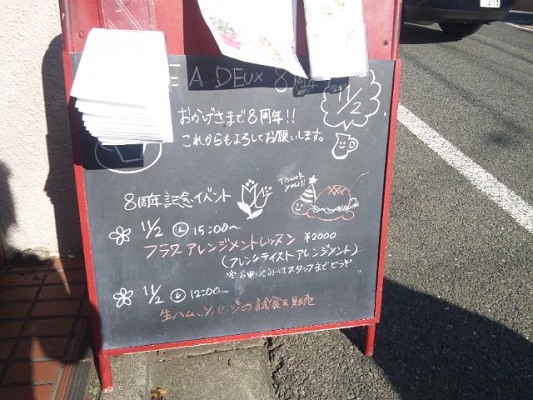 E A DEUX 8周年
11/2
おかげさまで8周年!!
これからもよろしくお願いします。
Thank you!!
8周年記念イベント
11/2 ㊏ 15:00〜
フラワーアレンジメントレッスン ¥2000
(フレンチテイストアレンジメント)
※お申し込みはスタッフまでどうぞ
11/2 ㊏ 12:00〜
生ハム、ソーセージの試食&販売